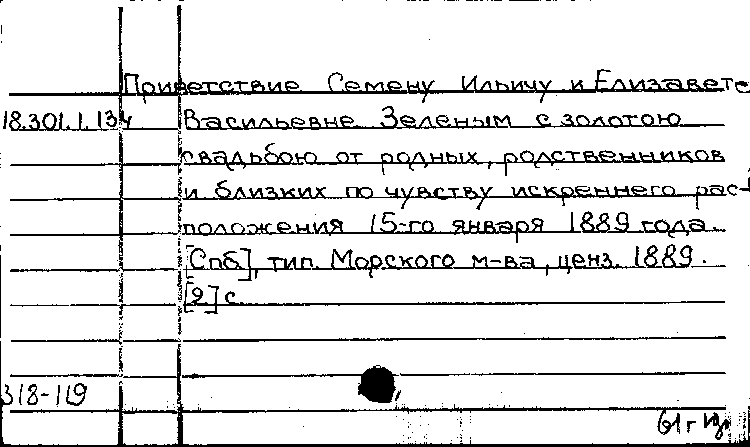 Приветствие Семену Ильичу и Елизавете
18.301.1.134 Васильевне Зеленым с золотою
свадьбою от родных, родственников
и близких по чувству искреннего рас-
положения 15-го января 1889 года.
[Спб], тип. Морского м-ва, ценз. 1889.
[2] с
318-119
61 г